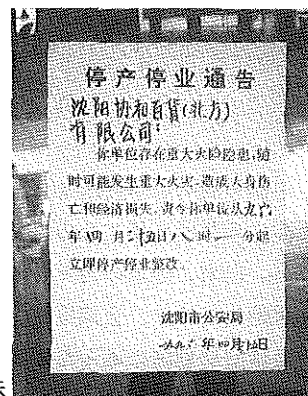 停产停业通告
沈阳协和百货(北方)
有限公司:
你单位存在重大火险隐患,随
时可能发生重大火灾,造成人身伤
亡和经济损失,责令你单位从九六
年四月二十五日八时 分起
立即停产停业整改。
沈阳市公安局
一九九六年四月 日